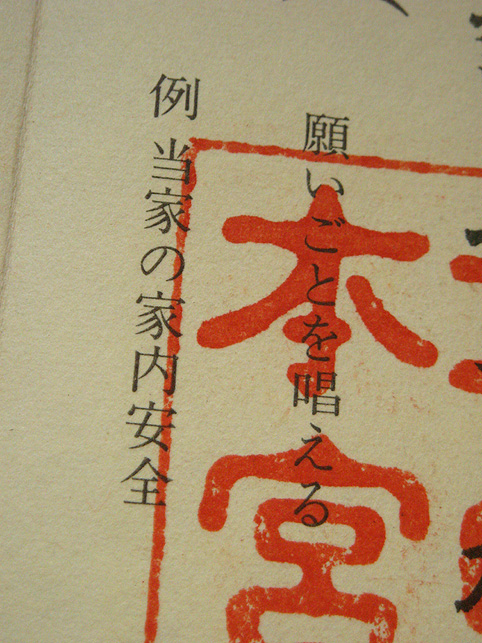 願いごとを唱える
例 当家の家内安全
本宮